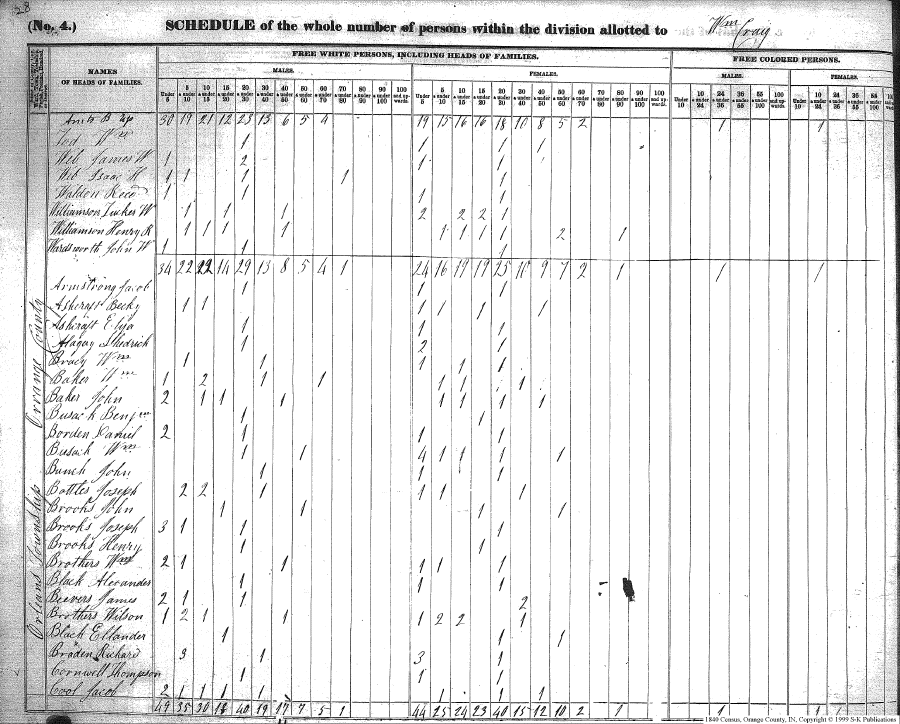 28
(No. 4.) SCHEDULE of the whole number of persons within the division allotted to Wm Cray
NAMES OF HEADS OF FAMILIES.
FREE WHITE PERSONS, INCLUDING HEADS OF FAMILIES.
FREE COLORED PERSONS.
MALES. FEMALES. MALES. FEMALES.
Under 5 5 & under 10 10 & under 15 15 & under 20 20 & under 30 30 & under 40 40 & under 50 50 & under 60 60 & under 70 70 & under 80 80 & under 90 90 & under 100 100 and upwards.
Under 5 5 & under 10 10 & under 15 15 & under 20 20 & under 30 30 & under 40 40 & under 50 50 & under 60 60 & under 70 70 & under 80 80 & under 90 90 & under 100 100 and upwards.
Under 10 10 & under 24 24 & under 36 36 & under 55 55 & under 100 100 and upwards.
Under 10 10 & under 24 24 & under 36 36 & under 55 55 & under 100
Amts B up 30 19 21 12 23 13 6 5 4 19 15 16 16 18 10 8 5 2 1 1
Wm 1 1 1 1
Web James W 1 2 1 1
Web Isaac H 1 1 1 1 1
Waldon Reed 1 1 1 1
Williamson Tucker W 1 1 1 2 2 2 1
Williamson Henry R 1 1 1 1 1 1 1 1 2 1
Wardsworth John W 1 1 1
34 22 22 14 29 13 8 5 4 1 24 16 19 19 25 10 9 7 2 1 1 1
Orleans Township Orrange County
Armstrong Jacob 1 1 1
Ashcraft Becky 1 1 1 1 1 1
Ashcraft Elija 1 1 1
Shedrick 1 2 1
Bracy Wm 1 1 1 1 1
Baker Wm 1 2 1 1 1 1 1
Baker John 2 1 1 1 1 1 1 1
Busack Benjm 1 1
Borden Daniel 2 1 1 1
Busack Wm 1 1 4 1 1 1 1
Bunch John 1 1 1
Bottles Joseph 2 2 1 1 1 1
Brooks John 1 1 1 1
Brooks Joseph 3 1 1 1
Brooks Henry 1 1
Brothers Wm 2 1 1 1 1 1
Black Alexander 1 1 1
Beavers James 2 1 1 2
Brothers Wilson 1 2 1 1 1 2 2 1
Black Ellander 1 1 1
Braden Richard 3 1 3 1
Cornwell Thompson 1 1 1
Cool Jacob 2 1 1 1 1 1 1 1
49 35 30 18 40 19 17 7 5 1 44 25 24 23 40 15 12 10 2 1 1 1
1840 Census, Orange County, IN, Copyright © 1999 S-K Publications